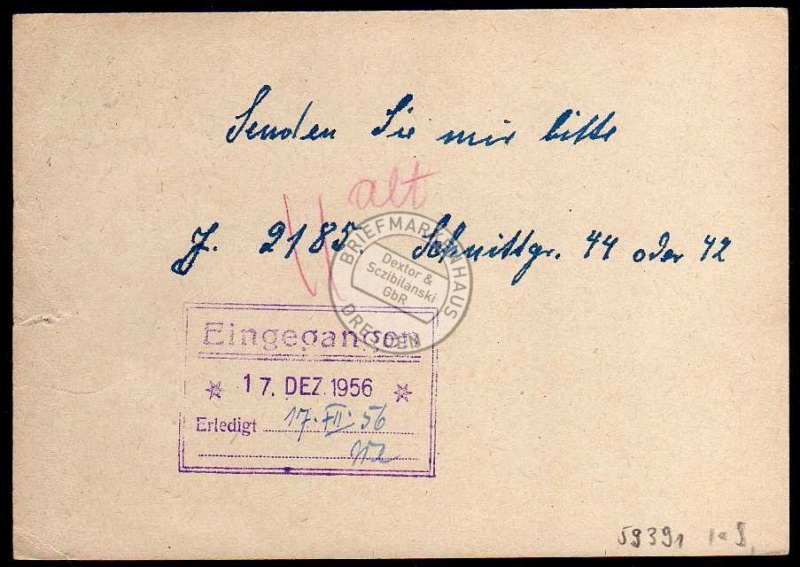 Senden Sie mir bitte
alt
J. 2185. Schnittgr. 44 oder 42
BRIEFMARKENHAUS
Dextor &
Sczibilanski
GbR
DRESDEN
Eingegangen
* 17. DEZ. 1956 *
Erledigt 17. XII. 56
59391